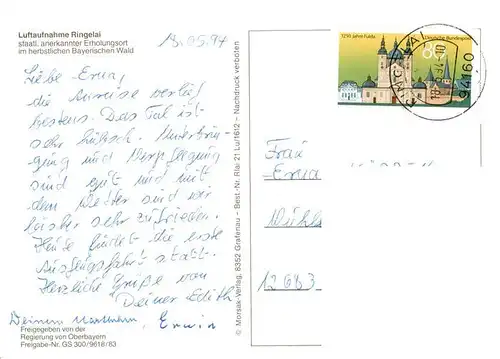 Luftaufnahme Ringelai
staatl. anerkannter Erholungsort
im herbstlichen Bayerischen Wald
18.05.94
Liebe Erna,
die Anreise verlief
bestens. Das Tal ist
sehr hübsch. Unterbrin-
gung und Verpflegung
sind gut und mit
dem Wetter sind wir
bisher sehr zufrieden.
Heute findet die erste
Ausflugsfahrt statt.
Herzliche Grüße von
Deiner Edith
Erwin
Freigegeben von der
Regierung von Oberbayern
Freigabe-Nr. GS 300/9618/83
© Morsak-Verlag, 8352 Grafenau – Best.-Nr. Rör 21 Lu/1612 – Nachdruck verboten
1250 Jahre Fulda
Deutsche Bundespost
80
94160
Frau
Erna
12683